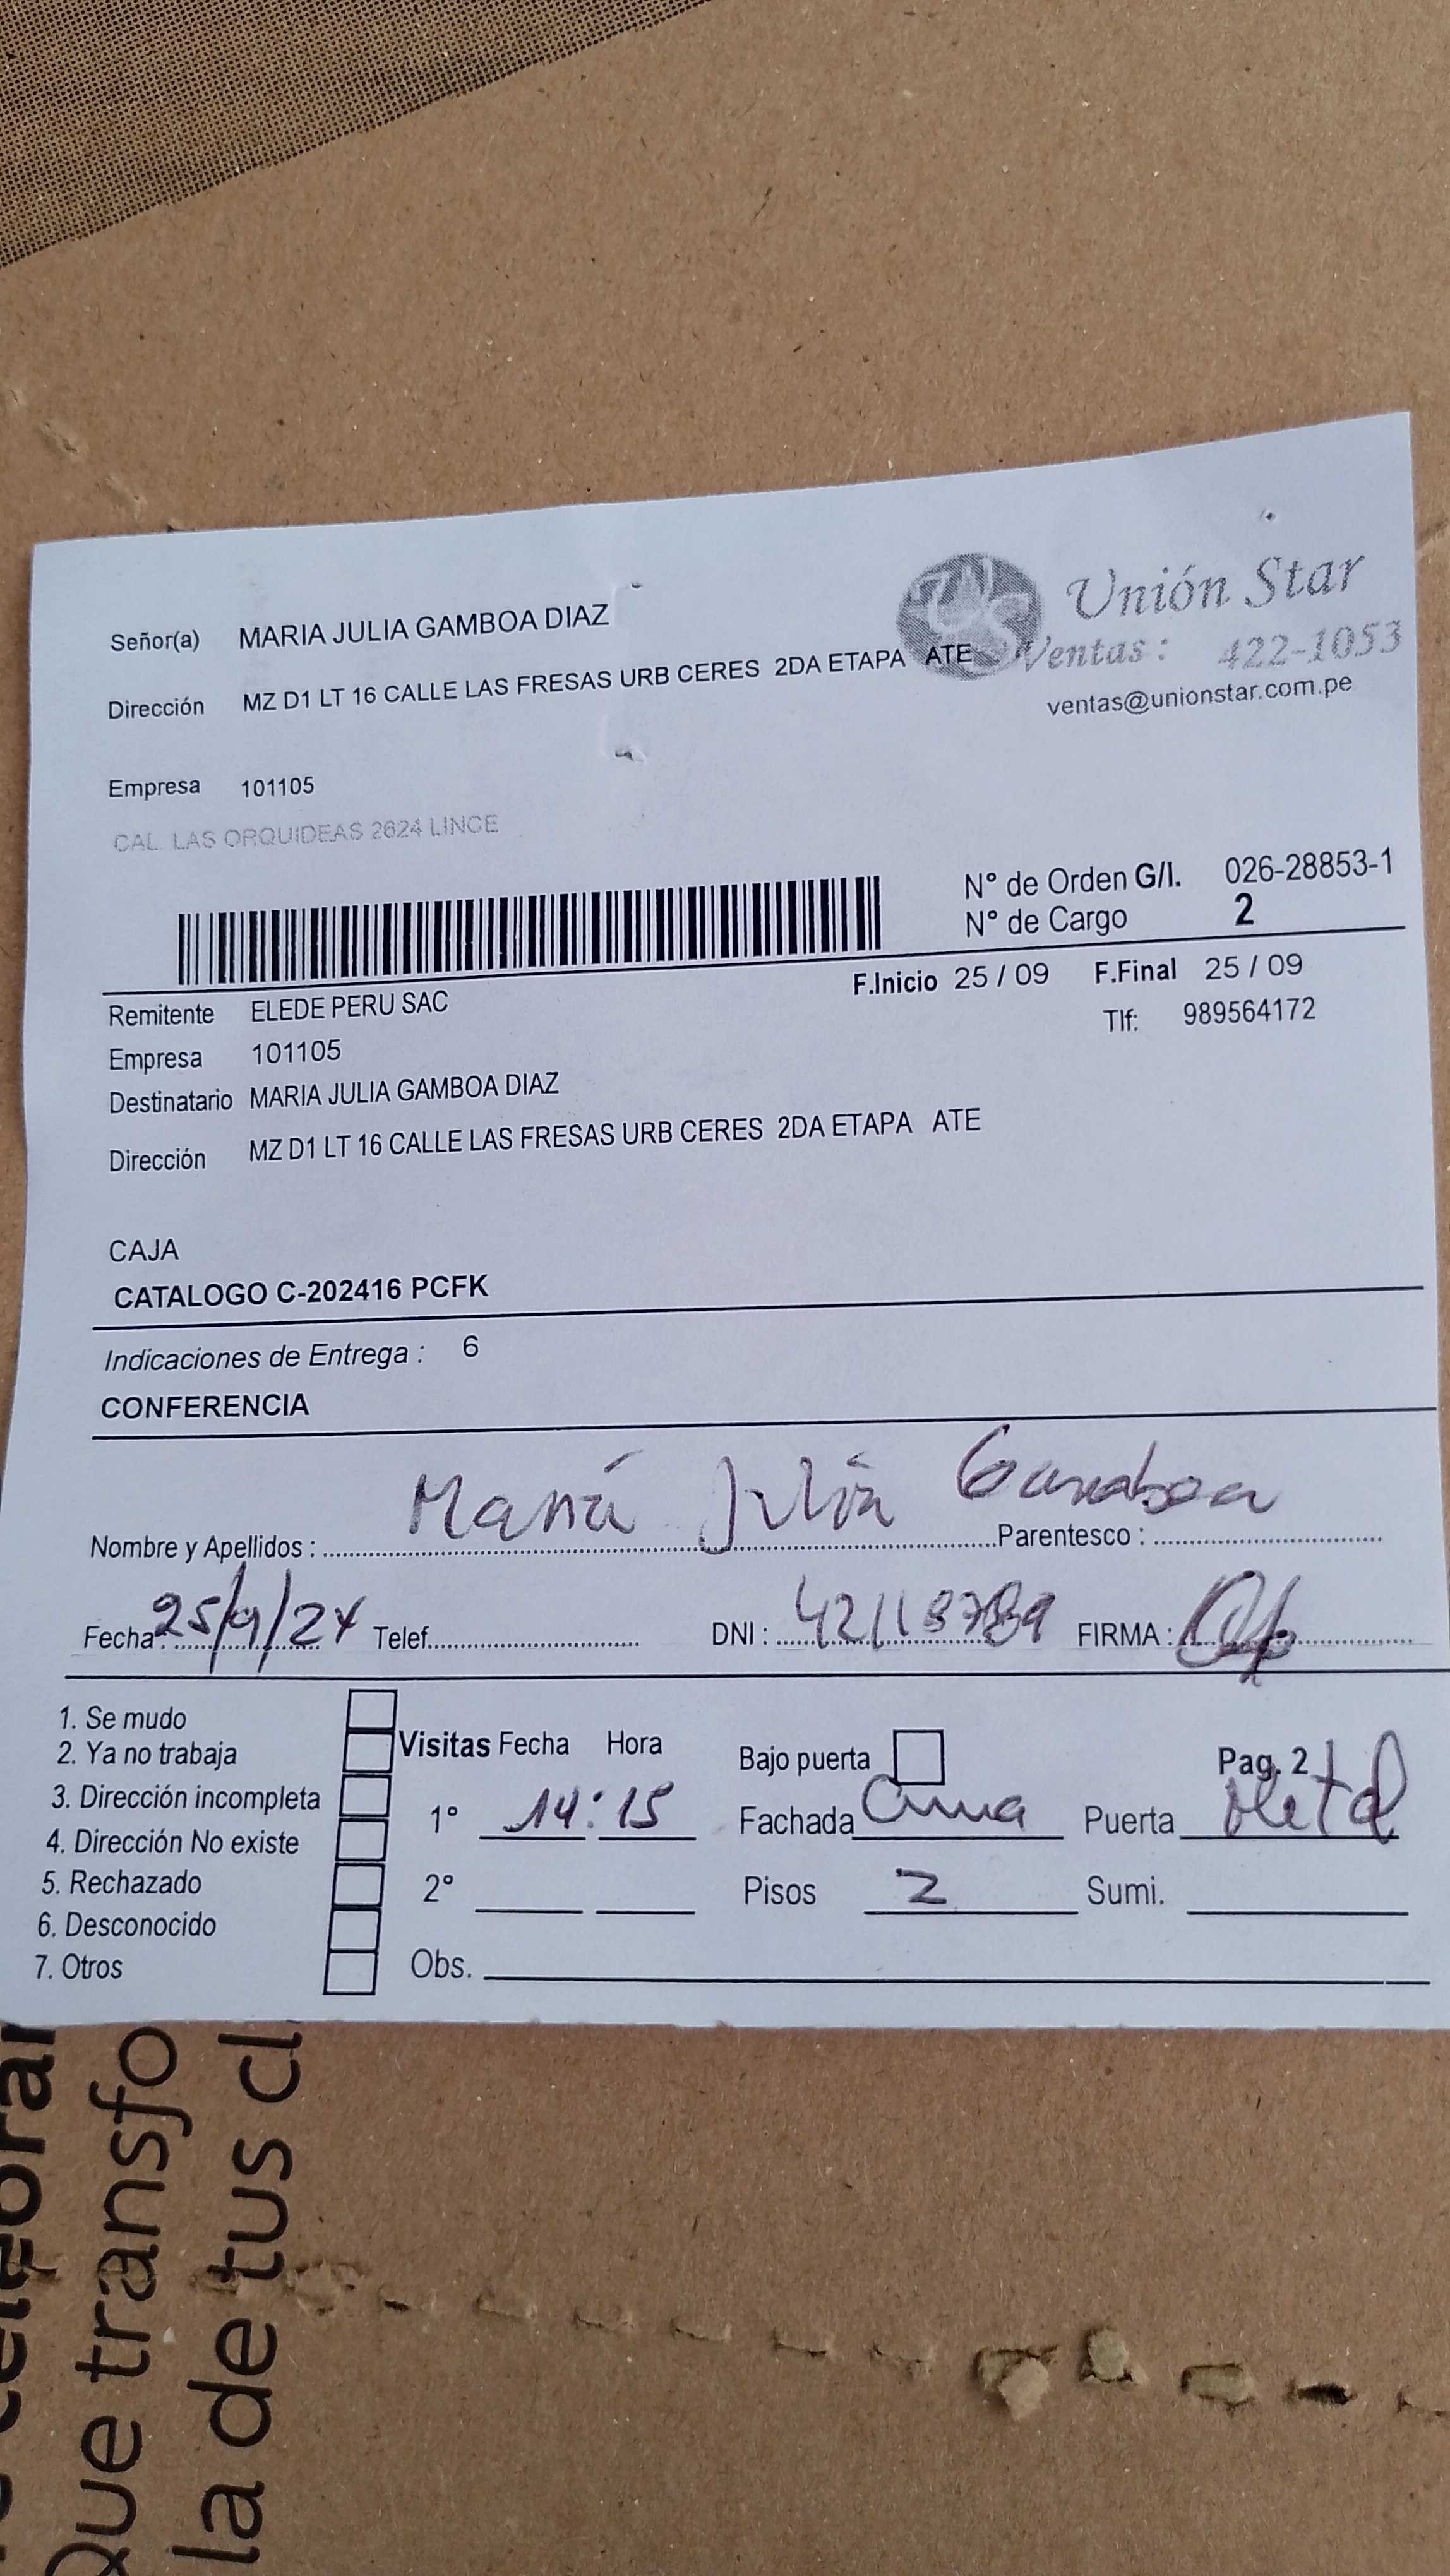 Señor(a) MARIA JULIA GAMBOA DIAZ
Unión Star
Dirección MZ D1 LT 16 CALLE LAS FRESAS URB CERES 2DA ETAPA ATE
Ventas : 422-1053
ventas@unionstar.com.pe
Empresa 101105
CAL. LAS ORQUIDEAS 2624 LINCE
N° de Orden G/I. 026-28853-1
N° de Cargo 2
F.Inicio 25 / 09 F.Final 25 / 09
Remitente ELEDE PERU SAC
Tlf: 989564172
Empresa 101105
Destinatario MARIA JULIA GAMBOA DIAZ
Dirección MZ D1 LT 16 CALLE LAS FRESAS URB CERES 2DA ETAPA ATE
CAJA
CATALOGO C-202416 PCFK
Indicaciones de Entrega : 6
CONFERENCIA
Nombre y Apellidos : María Julia Gamboa Parentesco :
Fecha: 25/9/24 Telef. DNI : FIRMA :
1. Se mudo
2. Ya no trabaja
3. Dirección incompleta
4. Dirección No existe
5. Rechazado
6. Desconocido
7. Otros
Visitas Fecha Hora
1° 14:15
2°
Obs.
Bajo puerta Pag. 2
Fachada Puerta
Pisos 2 Sumi.
que transfo
la de tus cl